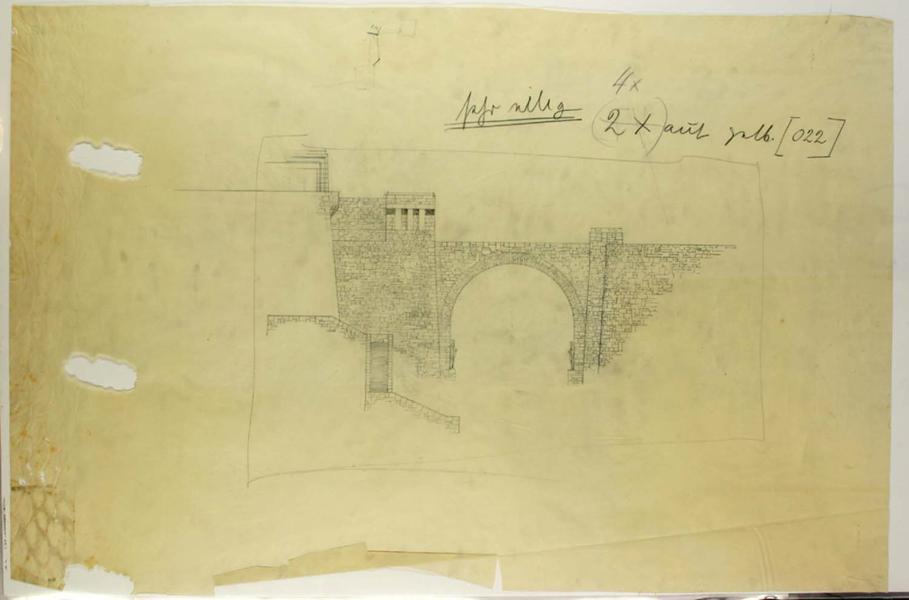 4x
sehr eilig
2 X auf gelb. [022]